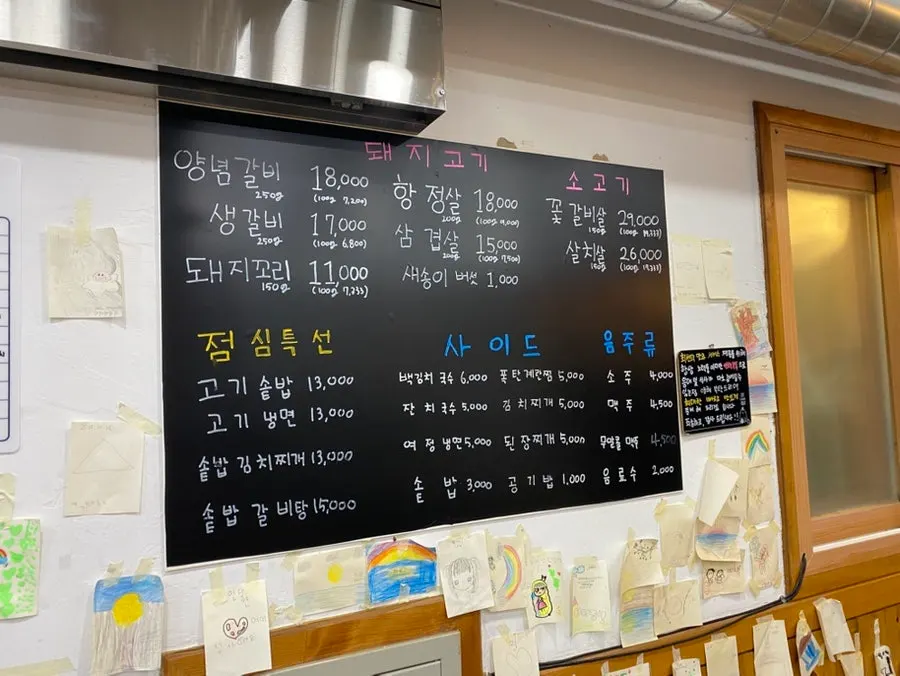 돼지고기
양념갈비 18,000
250g (100g 7,200)
생갈비 17,000
250g (100g 6,800)
돼지꼬리 11,000
150g (100g 7,333)
항정살 18,000
200g (100g 9,000)
삼겹살 15,000
200g (100g 7,500)
새송이 버섯 1,000
소고기
꽃갈비살 29,000
150g (100g 19,333)
살치살 26,000
150g (100g 17,333)
점심특선
고기 솥밥 13,000
고기 냉면 13,000
솥밥 김치찌개 13,000
솥밥 갈비탕 15,000
사이드
백김치 국수 6,000
잔치국수 5,000
여정냉면 5,000
솥밥 3,000
폭탄계란찜 5,000
김치찌개 5,000
된장찌개 5,000
공기밥 1,000
음주류
소주 4,000
맥주 4,500
무알콜 맥주 4,500
음료수 2,000